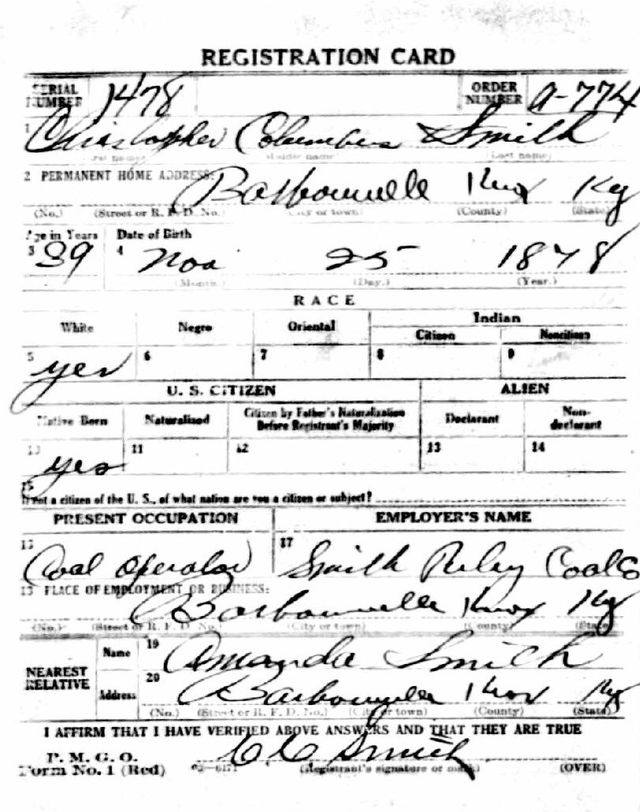 REGISTRATION CARD
SERIAL NUMBER 1478 ORDER NUMBER A-774
1 Christopher Columbus Smith
(First name) (Middle name) (Last name)
2 PERMANENT HOME ADDRESS:
Barbourville Knox Ky
(No.) (Street or R. F. D. No.) (City or town) (County) (State)
Age in Years Date of Birth
3 39 4 Nov 25 1878
(Month.) (Day.) (Year.)
RACE
White Negro Oriental Indian
Citizen Noncitizen
5 yes 6 7 8 9
U. S. CITIZEN ALIEN
Native Born Naturalized Citizen by Father's Naturalization Before Registrant's Majority Declarant Non-declarant
10 yes 11 12 13 14
15
If not a citizen of the U. S., of what nation are you a citizen or subject?
PRESENT OCCUPATION EMPLOYER'S NAME
16 Coal Operator 17 Smith Coal Co
18 PLACE OF EMPLOYMENT OR BUSINESS:
Barbourville Knox Ky
(No.) (Street or R. F. D. No.) (City or town) (County) (State)
NEAREST RELATIVE Name 19 Amanda Smith
Address 20 Barbourville Knox Ky
(No.) (Street or R. F. D. No.) (City or town) (County) (State)
I AFFIRM THAT I HAVE VERIFIED ABOVE ANSWERS AND THAT THEY ARE TRUE
P. M. G. O.
Form No. 1 (Red) C C Smith
(Registrant's signature or mark) (OVER)